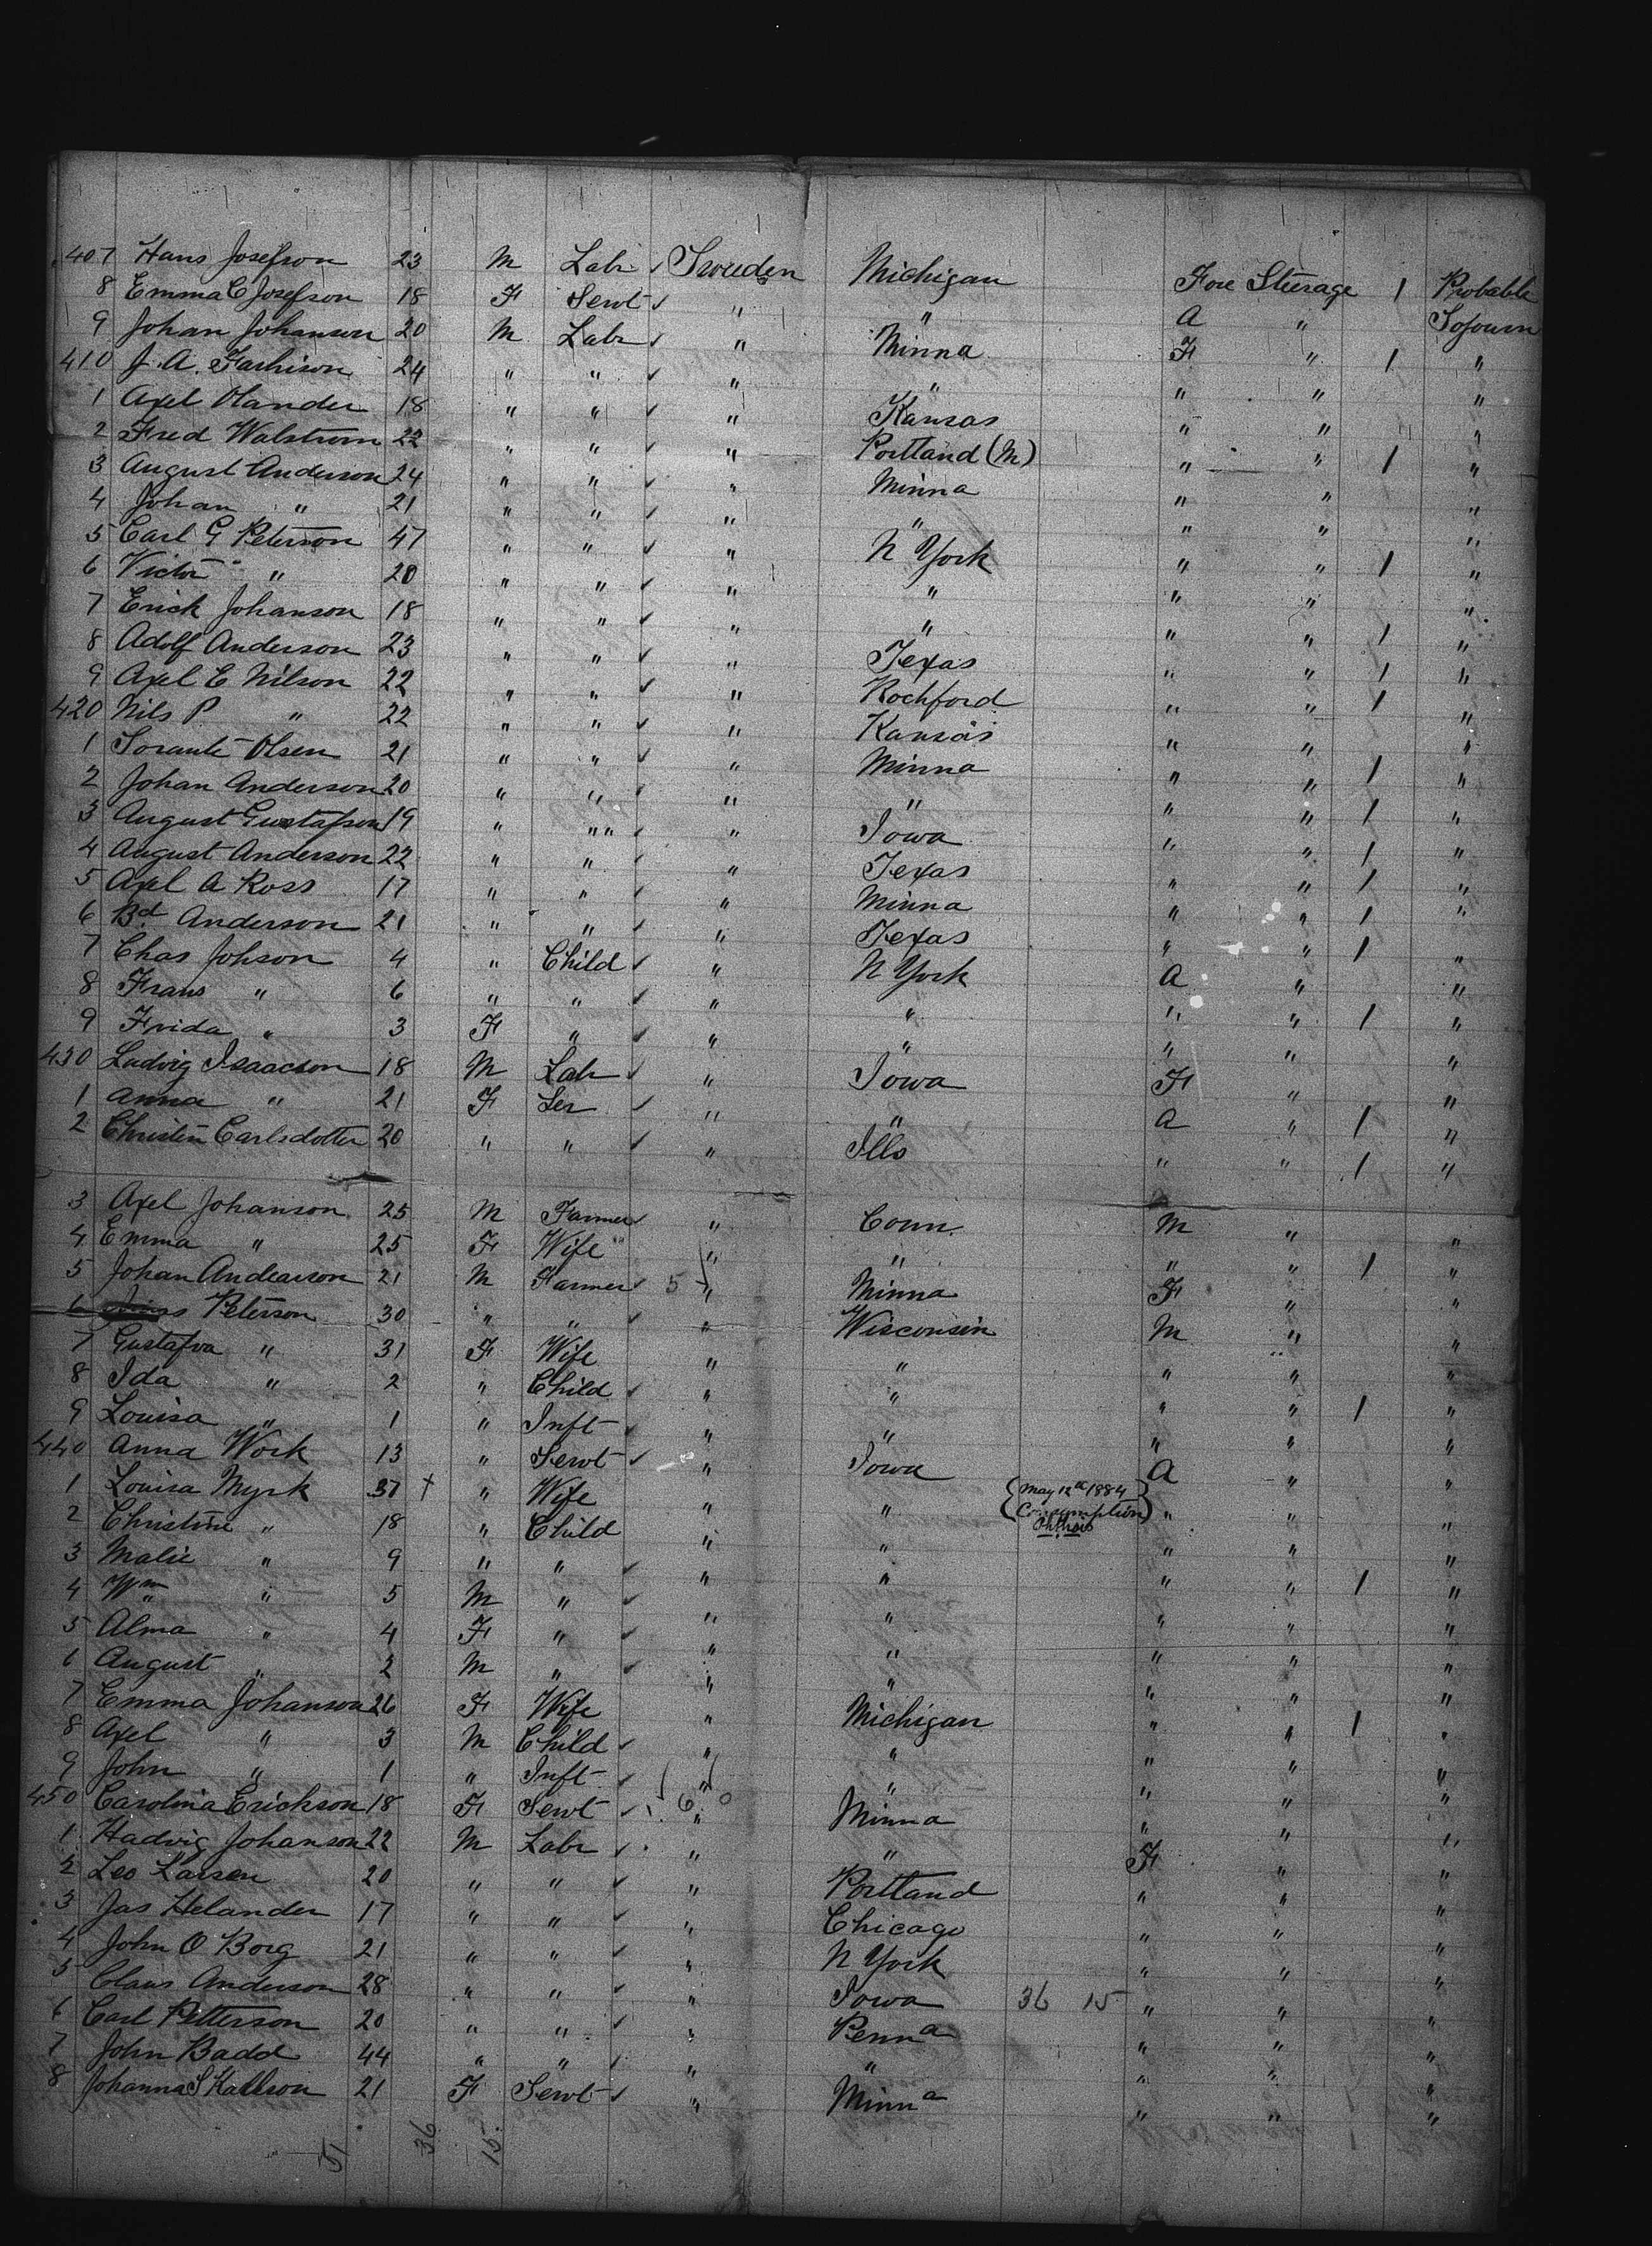 407 Hans Josefson 23 M Labr ✓ Sweden Michigan Fore Steerage 1 Probable
8 Emma C Josefson 18 F Servt ✓ " " A " Sojourn
9 Johan Johanson 20 M Labr ✓ " Minna F " 1 "
410 J. A. 24 " " ✓ " " " " "
1 Axel Olander 18 " " ✓ " Kansas " " "
2 Fred Walstrom 22 " " ✓ " Portland (M) " " 1 "
3 August Anderson 24 " " ✓ " Minna " " "
4 Johan " 21 " " ✓ " " " " "
5 Carl G Peterson 47 " " ✓ " N York " " 1 "
6 Victor " 20 " " ✓ " " " " "
7 Erick Johanson 18 " " ✓ " " " " 1 "
8 Adolf Anderson 23 " " ✓ " Texas " " 1 "
9 Axel E Nilson 22 " " ✓ " Rochford " " 1 "
420 Nils P " 22 " " ✓ " Kansas " " "
1 Olsen 21 " " ✓ " Minna " " 1 "
2 Johan Anderson 20 " " ✓ " " " " 1 "
3 August Gustafson 19 " " " ✓ " Iowa " " 1 "
4 August Anderson 22 " " ✓ " Texas " " 1 "
5 Axel A Ross 17 " " ✓ " Minna " " 1 "
6 Bd Anderson 21 " " ✓ " Texas " " 1 "
7 Chas Johson 4 " Child ✓ " N York A " "
8 Frans " 6 " " ✓ " " " " 1 "
9 Frida " 3 F " ✓ " " " " "
430 Ludvig Isaacson 18 M Labr ✓ " Iowa F " "
1 Anna " 21 F Ser ✓ " " A " 1 "
2 Christin Carlsdotter 20 " " ✓ " Ills " " 1 "
3 Axel Johanson 25 M Farmer ✓ " Conn. M " "
4 Emma " 25 F Wife " " " " 1 "
5 Johan Andearson 21 M Farmer ✓ 5 " Minna F " "
6 Peterson 30 " " ✓ " Wisconsin M " "
7 Gustafva " 31 F Wife " " " " "
8 Ida " 2 " Child ✓ " " " " 1 "
9 Louisa " 1 " Inft ✓ " " " " "
440 Anna Work 13 " Servt ✓ " Iowa A " "
1 Louisa Myrk 37 † " Wife " " { May 12th 1884 } " " "
2 Christine " 18 " Child " " ( Consumption ) " " "
Phthisis
3 Malie " 9 " " ✓ " " " " 1 "
4 Wm " 5 M " ✓ " " " " "
5 Alma " 4 F " ✓ " " " " "
6 August " 2 M " ✓ " " " " "
7 Emma Johanson 26 F Wife " Michigan " " 1 "
8 Axel " 3 M Child ✓ " " " " "
9 John " 1 " Inft ✓ " " " " "
450 Carolina Erickson 18 F Servt ✓ 6 " Minna " " "
1 Hadvig Johanson 22 M Labr ✓ " " F " "
2 Leo Larsen 20 " " ✓ " Portland " " "
3 Jas Helander 17 " " ✓ " Chicago " " "
4 John O Borg 21 " " ✓ " N York " " "
5 Claus Anderson 28 " " ✓ " Iowa 36 15 " " "
6 Carl Petterson 20 " " ✓ " Penna " " "
7 John Badd 44 " " ✓ " " " " "
8 Johanna S Karlson 21 F Servt ✓ " Minna " " "
51 36 15